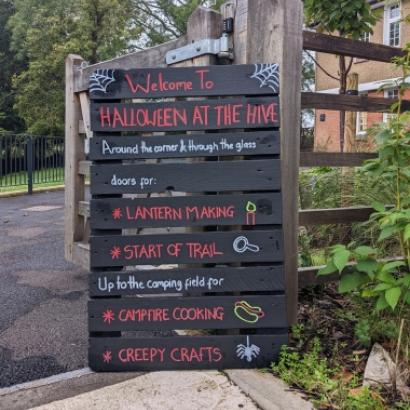 Welcome To
HALLOWEEN AT THE HIVE
Around the corner & through the glass
doors for:
* LANTERN MAKING
* START OF TRAIL
Up to the camping field for
* CAMPFIRE COOKING
* CREEPY CRAFTS